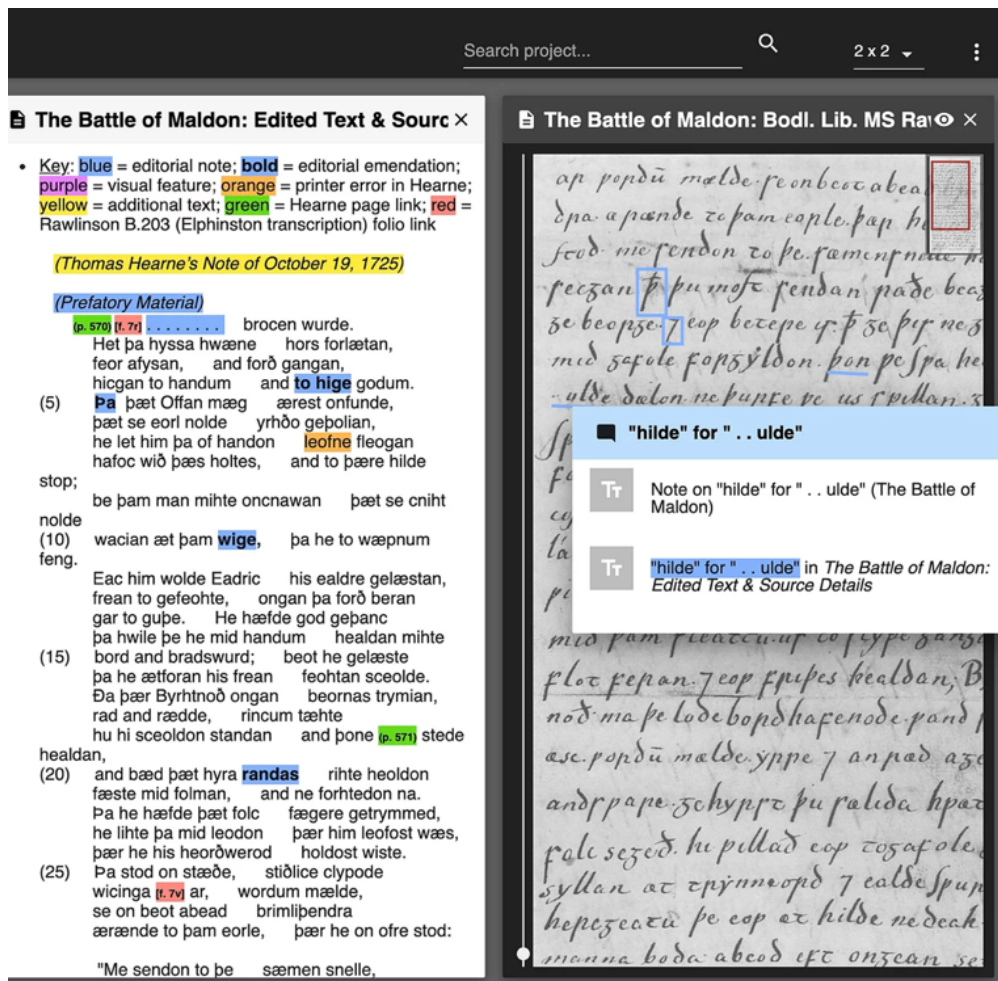 Search project...
2 x 2
The Battle of Maldon: Edited Text & Sourc
• Key: blue = editorial note; bold = editorial emendation;
purple = visual feature; orange = printer error in Hearne;
yellow = additional text; green = Hearne page link; red =
Rawlinson B.203 (Elphinston transcription) folio link
(Thomas Hearne's Note of October 19, 1725)
(Prefatory Material)
(p. 570) [f. 7r] . . . . . . . . brocen wurde.
Het þa hyssa hwæne hors forlætan,
feor afysan, and forð gangan,
hicgan to handum and to hige godum.
(5) Þa þæt Offan mæg ærest onfunde,
þæt se eorl nolde yrhðo geþolian,
he let him þa of handon leofne fleogan
hafoc wið þæs holtes, and to þære hilde
stop;
be þam man mihte oncnawan þæt se cniht
nolde
(10) wacian æt þam wige, þa he to wæpnum
feng.
Eac him wolde Eadric his ealdre gelæstan,
frean to gefeohte, ongan þa forð beran
gar to guþe. He hæfde god geþanc
þa hwile þe he mid handum healdan mihte
(15) bord and bradswurd; beot he gelæste
þa he ætforan his frean feohtan sceolde.
Ða þær Byrhtnoð ongan beornas trymian,
rad and rædde, rincum tæhte
hu hi sceoldon standan and þone (p. 571) stede
healdan,
(20) and bæd þæt hyra randas rihte heoldon
fæste mid folman, and ne forhtedon na.
Þa he hæfde þæt folc fægere getrymmed,
he lihte þa mid leodon þær him leofost wæs,
þær he his heorðwerod holdost wiste.
(25) Þa stod on stæðe, stiðlice clypode
wicinga [f. 7v] ar, wordum mælde,
se on beot abead brimliþendra
ærænde to þam eorle, þær he on ofre stod:
"Me sendon to þe sæmen snelle,
The Battle of Maldon: Bodl. Lib. MS Ra
ar ƿordū mælde. se on beot abea
to þam eorle. þær
stod. me sendon to þe. sæmen
secgan ꝥ þu most sendan raðe
ge beorge. ⁊ eop betere is. ꝥ ge
mid gafole forgyldon. þon ƿe sƿa he
ulde dælon. ne þurfe ƿe us spillan.
"hilde" for " . . ulde"
Note on "hilde" for " . . ulde" (The Battle of
Maldon)
"hilde" for " . . ulde" in The Battle of Maldon:
Edited Text & Source Details
flot feran. ⁊ eoƿ friþes healdan; B
noð maþelode bord hafenode. ƿand
æsc. ƿordū mælde. yrre ⁊ anræd
andsƿare. gehyrst þu sælida hƿæt
folc segeð. hi ƿillað eoƿ to gafole
syllan ættrynne ord ⁊ ealde sƿur
heregeatu þe eoƿ æt hilde ne deah
manna boda abeod eft ongean